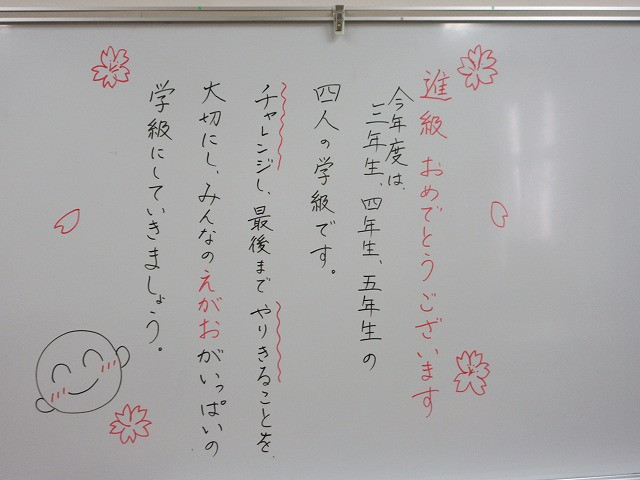 進級 おめでとうございます
今年度は、
三年生、四年生、五年生の
四人の学級です。
チャレンジし、最後まで やりきることを
大切にし、みんなのえがおがいっぱいの
学級にしていきましょう。